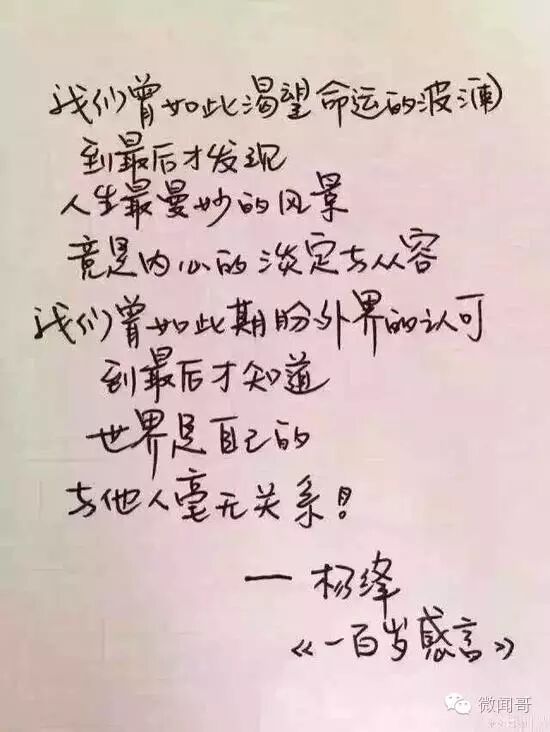 我们曾如此渴望命运的波澜
到最后才发现
人生最曼妙的风景
竟是内心的淡定与从容
我们曾如此期盼外界的认可
到最后才知道
世界是自己的
与他人毫无关系！
— 杨绛
《一百岁感言》
微闻哥